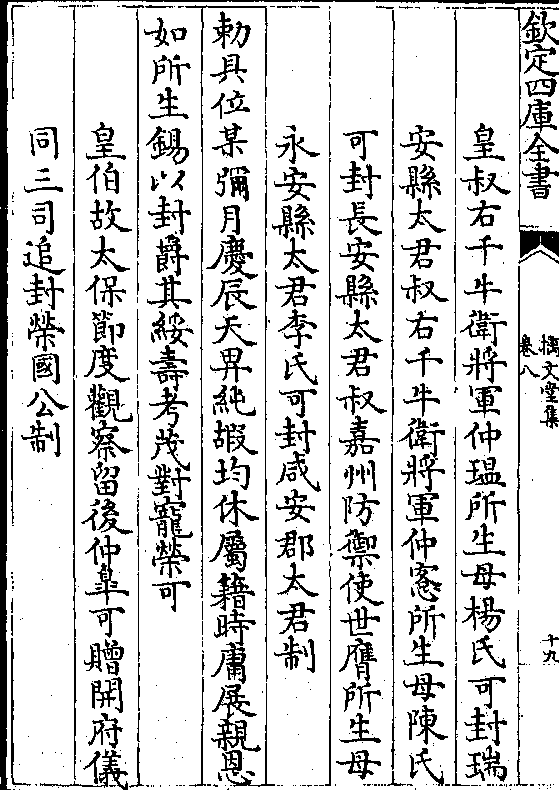 欽定四庫全書
摛文堂集
卷八
十九
皇叔右千牛衛將軍仲瑥所生母楊氏可封瑞
安縣太君叔右千牛衛將軍仲窓所生母陳氏
可封長安縣太君叔嘉州防禦使世膺所生母
永安縣太君李氏可封咸安郡太君制
勅具位某彌月慶辰天畀純嘏均休屬籍時庸展親恩
如所生錫以封爵其綏壽考茂對寵榮可
皇伯故太保節度觀察留後仲皐可贈開府儀
同三司追封榮國公制